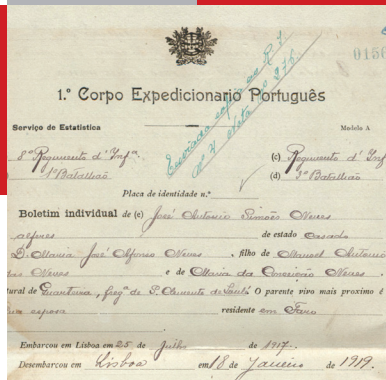 0156
Enviado copia ao R. I.
nº 4 Nota nº 276
1.º Corpo Expedicionario Português
Serviço de Estatistica
Modelo A
8º Regimento d' Infª
(c) Regimento d' Inf
1º Batalhão
(d) 3º Batalhão
Placa de identidade n.º
Boletim individual de (e) José António Simões Neves
alferes de estado casado
D. Maria José Afonso Neves, filho de Manuel Antonio
das Neves e de Maria da Conceição Neves.
tural de Quarteira, fregª de S. Clemente de Loulé O parente vivo mais proximo é
sua esposa residente em Faro
Embarcou em Lisboa em 25 de Julho de 1917.
Desembarcou em Lisboa em 18 de Janeiro de 1919.